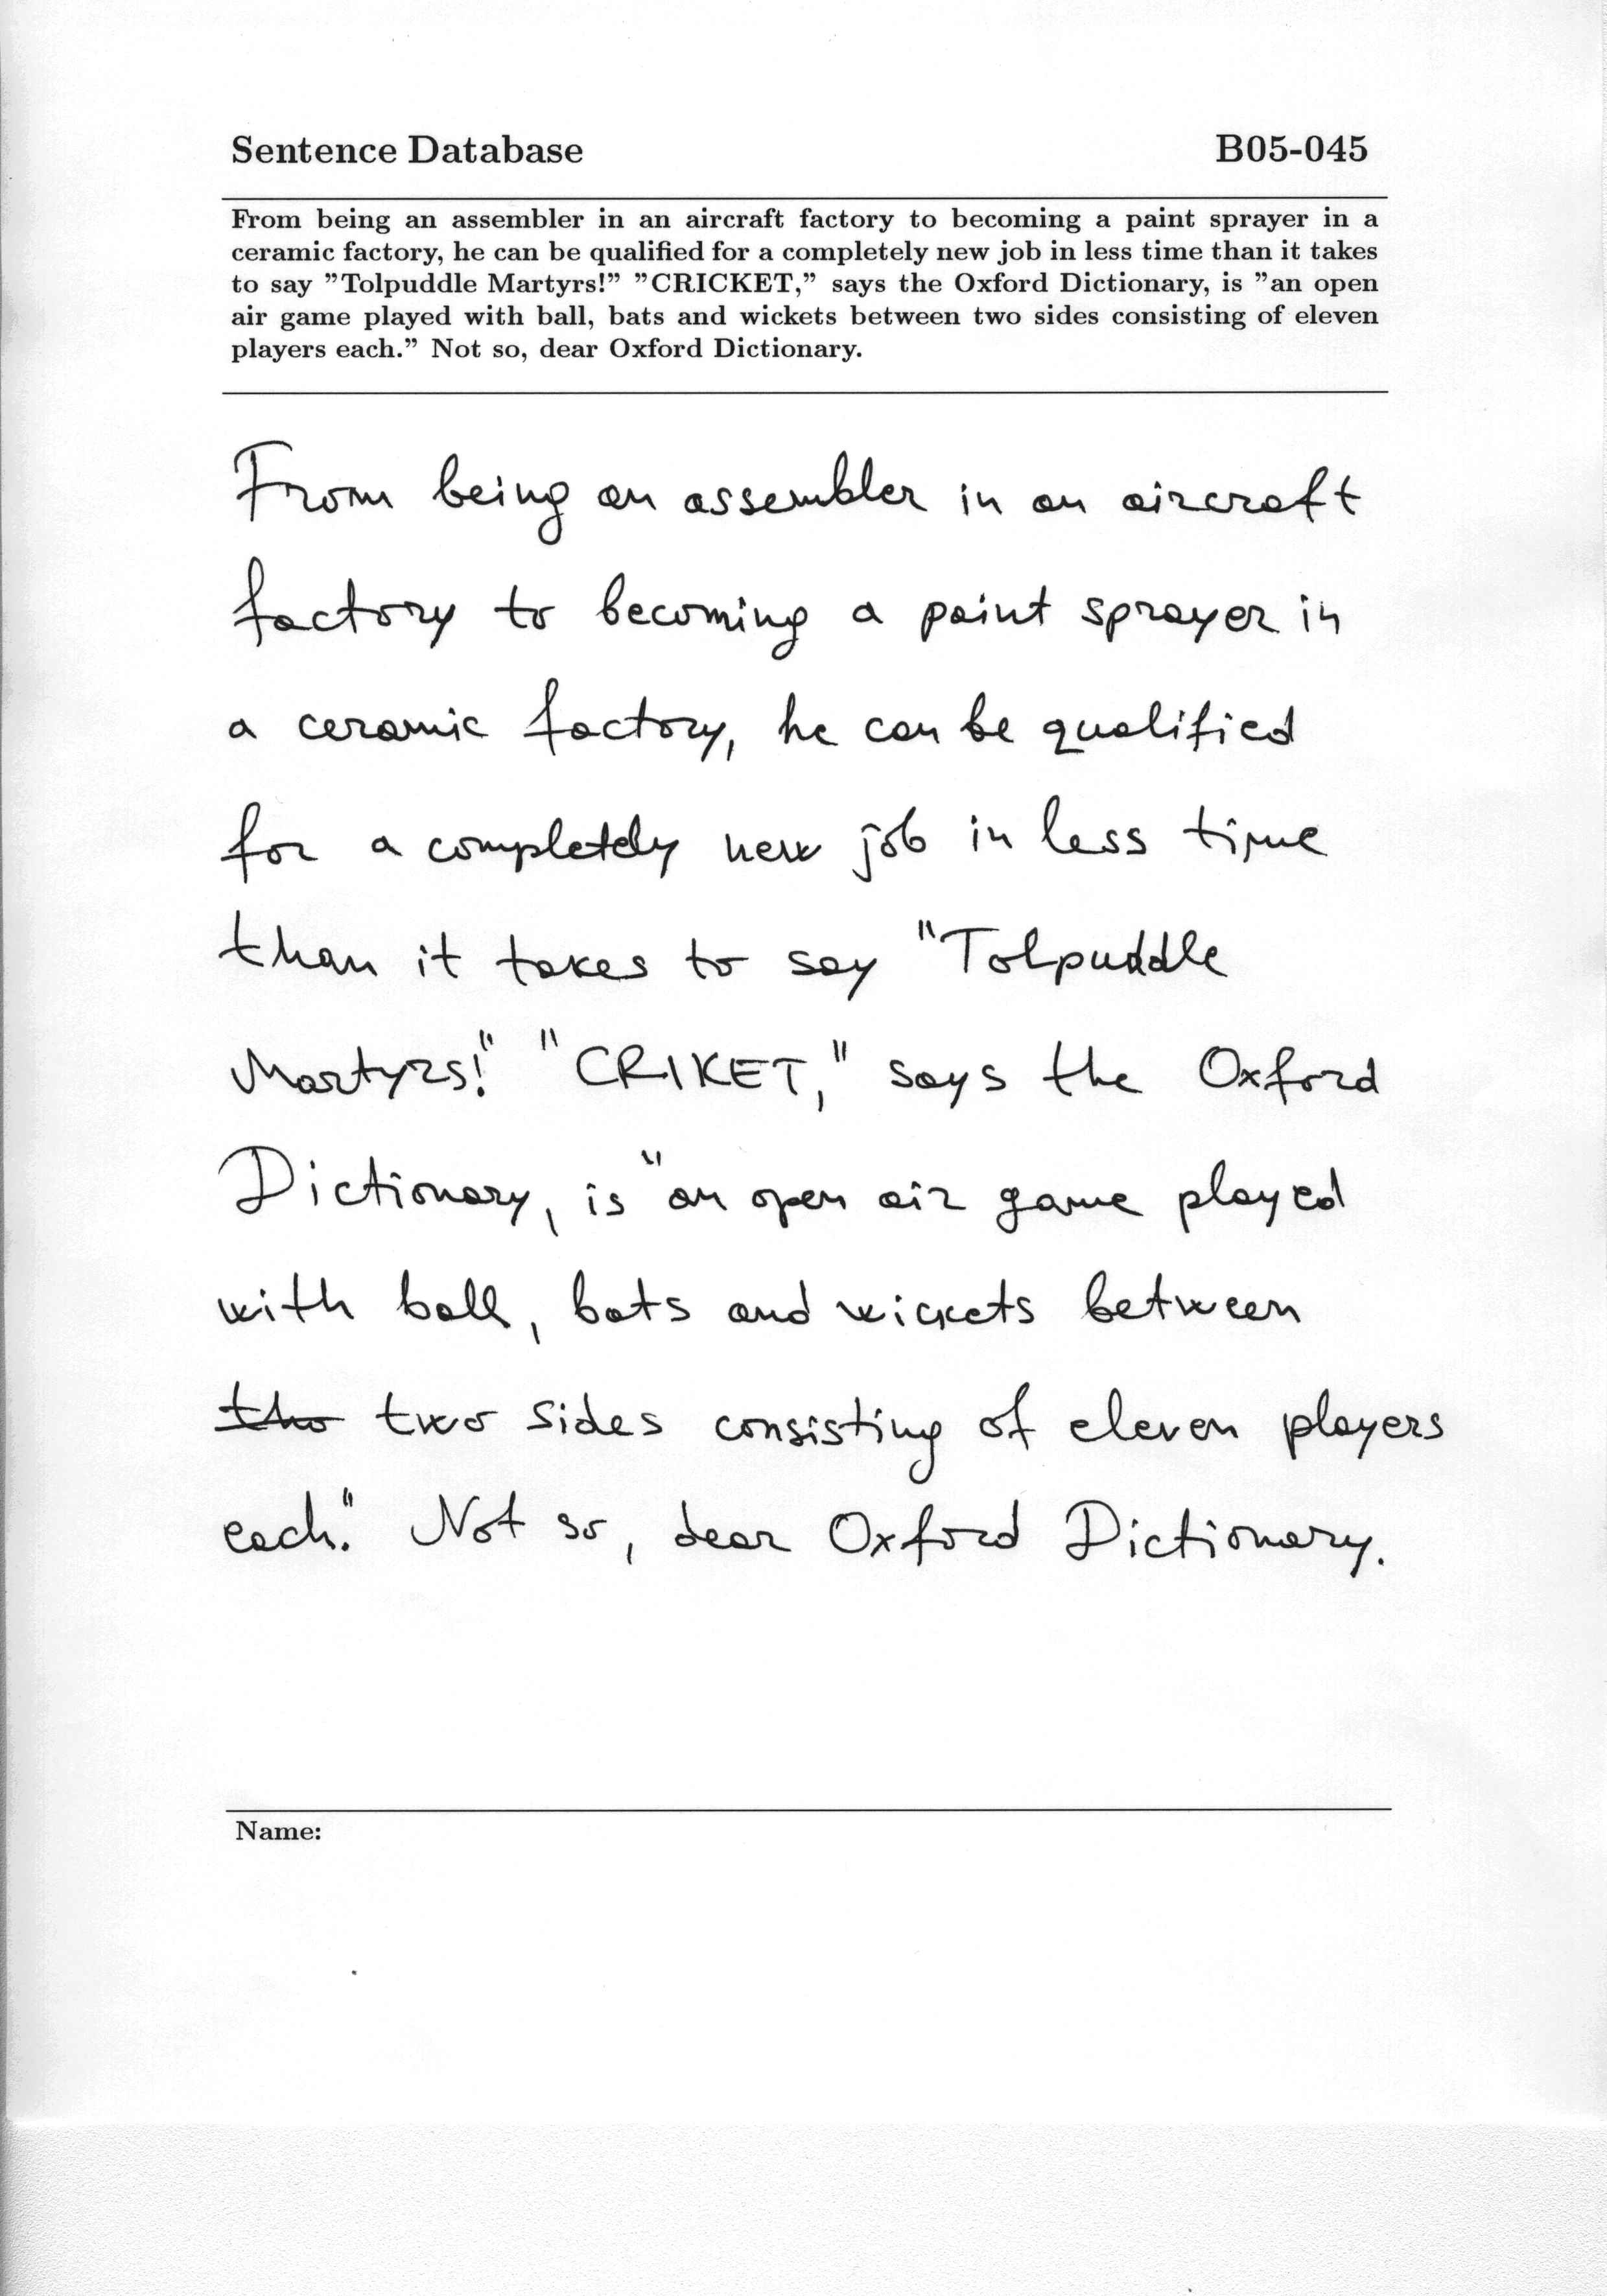 Sentence Database B05-045
From being an assembler in an aircraft factory to becoming a paint sprayer in a
ceramic factory, he can be qualified for a completely new job in less time than it takes
to say ”Tolpuddle Martyrs!” ”CRICKET,” says the Oxford Dictionary, is ”an open
air game played with ball, bats and wickets between two sides consisting of eleven
players each.” Not so, dear Oxford Dictionary.
From being an assembler in an aircraft
factory to becoming a paint sprayer in
a ceramic factory, he can be qualified
for a completely new job in less time
than it takes to say "Tolpuddle
Martyrs!" "CRIKET," says the Oxford
Dictionary, is "an open air game played
with ball, bats and wickets between
tho two sides consisting of eleven players
each." Not so, dear Oxford Dictionary.
Name: